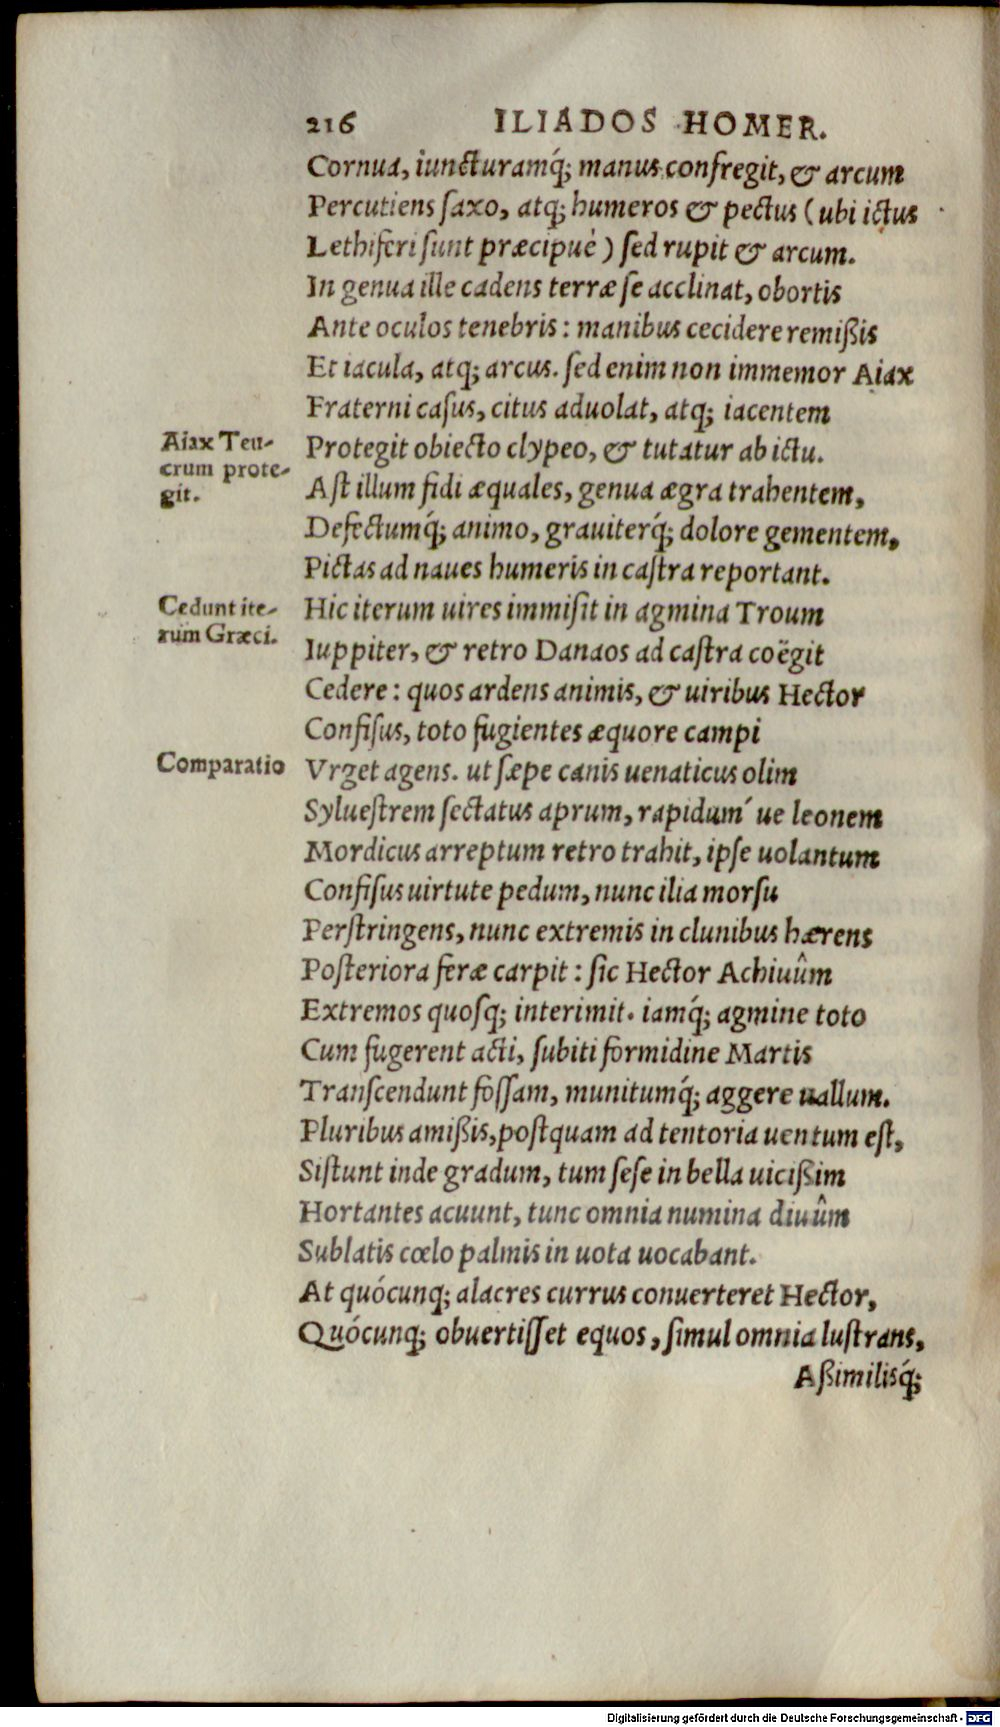 216 ILIADOS HOMER.
Cornua, iuncturamq́; manus confregit, & arcum
Percutiens ſaxo, atq; humeros & pectus (ubi ictus
Lethiferi ſunt præcipuè) ſed rupit & arcum.
In genua ille cadens terræ ſe acclinat, obortis
Ante oculos tenebris: manibus cecidere remißis
Et iacula, atq; arcus. ſed enim non immemor Aiax
Fraterni caſus, citus aduolat, atq; iacentem
Aiax Teu-
crum prote-
git.
Protegit obiecto clypeo, & tutatur ab ictu.
Aſt illum fidi æquales, genua ægra trahentem,
Defectumq́; animo, grauiterq́; dolore gementem,
Pictas ad naues humeris in caſtra reportant.
Cedunt ite-
rum Græci.
Hic iterum uires immiſit in agmina Troum
Iuppiter, & retro Danaos ad caſtra coëgit
Cedere: quos ardens animis, & uiribus Hector
Confiſus, toto fugientes æquore campi
Comparatio
Vrget agens. ut ſæpe canis uenaticus olim
Sylueſtrem ſectatus aprum, rapidum´ ue leonem
Mordicus arreptum retro trahit, ipſe uolantum
Confiſus uirtute pedum, nunc ilia morſu
Perſtringens, nunc extremis in clunibus hærens
Poſteriora feræ carpit: ſic Hector Achiuûm
Extremos quoſq; interimit. iamq́; agmine toto
Cum fugerent acti, ſubiti formidine Martis
Tranſcendunt foſſam, munitumq́; aggere uallum.
Pluribus amißis, poſtquam ad tentoria uentum eſt,
Siſtunt inde gradum, tum ſeſe in bella uicißim
Hortantes acuunt, tunc omnia numina diuûm
Sublatis cœlo palmis in uota uocabant.
At quócunq; alacres currus conuerteret Hector,
Quócunq; obuertiſſet equos, ſimul omnia luſtrans,
Aßimilisq́;
Digitalisierung gefördert durch die Deutsche Forschungsgemeinschaft - DFG